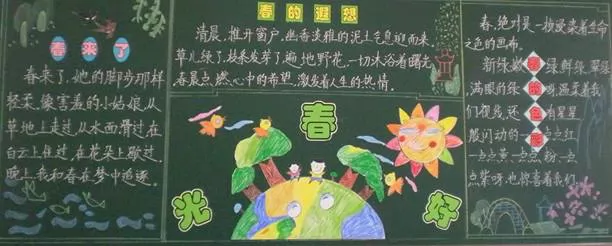 春来了
春来了，她的脚步那样
轻柔，像害羞的小姑娘，从
草地上走过，从水面滑过，在
白云上住过，在花朵上歇过，
晚上我和春在梦中追逐。
春的遐想
清晨，推开窗户，幽香淡雅的泥土气息迎面来，
草儿绿了，枝条发芽了，遍地野花，一切沐浴着曙光，
春晨点燃心中的希望，激发着人生的热情。
春
光
好
春，绝对是一抹漫染着生命
之色的画布。
新绿、嫩绿、鲜绿、翠绿
满眼的绿呀，温柔着我
们视线，还有星星
般闪动的一点点红
一点点黄一点点粉一点
点紫呀，也惊喜着我们